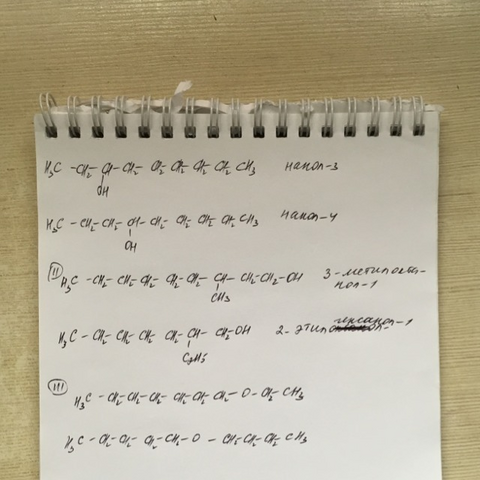 H₃C - CH₂ - CH - CH₂ - CH₂ - CH₂ - CH₂ - CH₂ - CH₃ нанол-3
OH
H₃C - CH₂ - CH₂ - CH - CH₂ - CH₂ - CH₂ - CH₂ - CH₃ нанол-4
OH
II H₃C - CH₂ - CH₂ - CH₂ - CH₂ - CH₂ - CH - CH₂ - CH₂ - OH 3-метилокта-
CH₃ нол-1
H₃C - CH₂ - CH₂ - CH₂ - CH₂ - CH - CH₂ - OH 2-этилгексанол-1
C₂H₅
III H₃C - CH₂ - CH₂ - CH₂ - CH₂ - CH₂ - CH₂ - O - CH₂ - CH₃
H₃C - CH₂ - CH₂ - CH₂ - CH₂ - O - CH₂ - CH₂ - CH₂ - CH₃